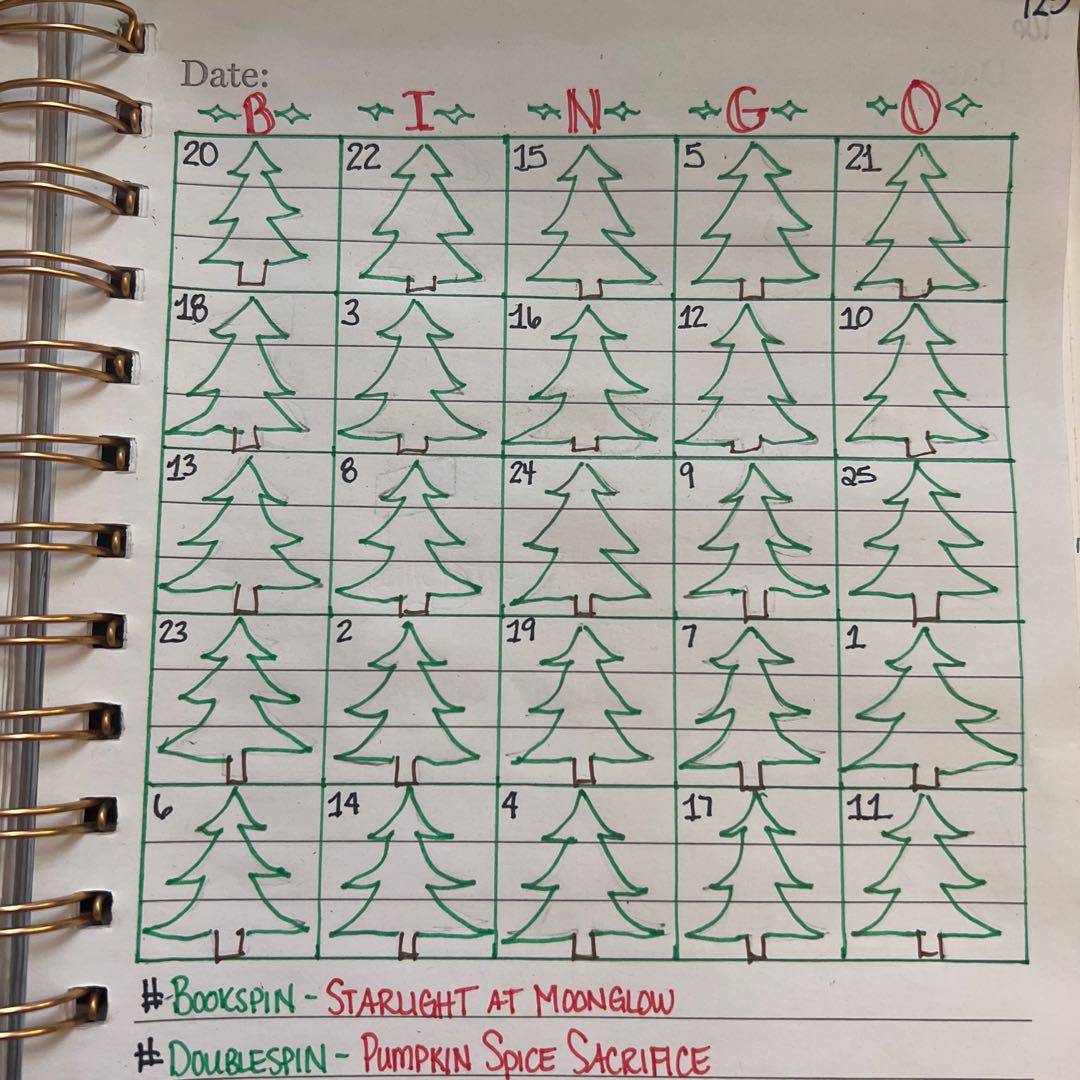 125
Date:
B I N G O
20 22 15 5 21
18 3 16 12 10
13 8 24 9 25
23 2 19 7 1
6 14 4 17 11
#BOOKSPIN - STARLIGHT AT MOONGLOW
#DOUBLESPIN - PUMPKIN SPICE SACRIFICE